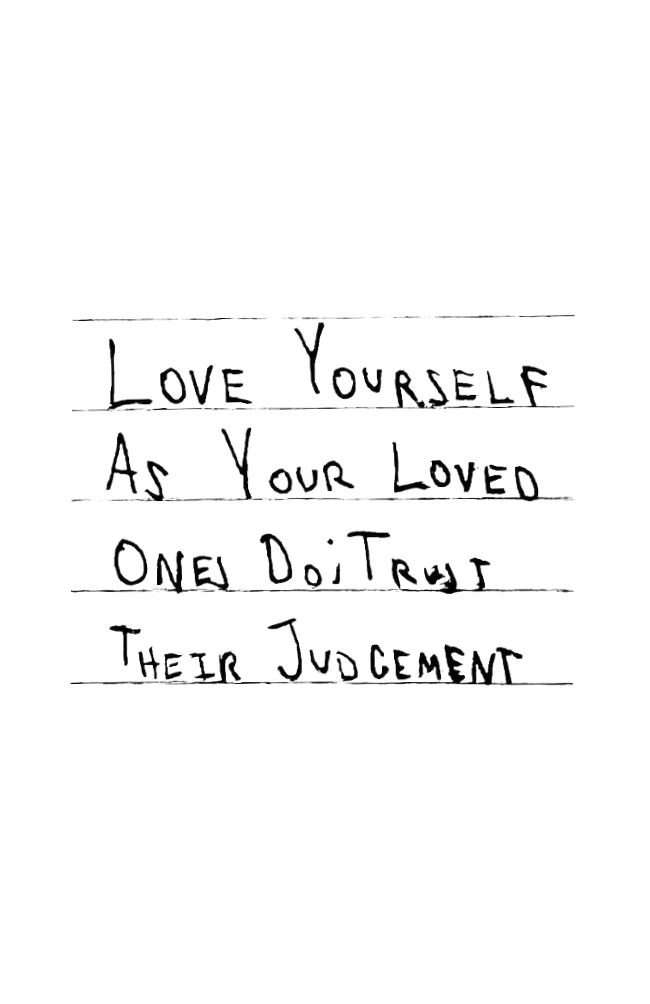 Love Yourself
As Your Loved
Ones Do; Trust
Their Judgement